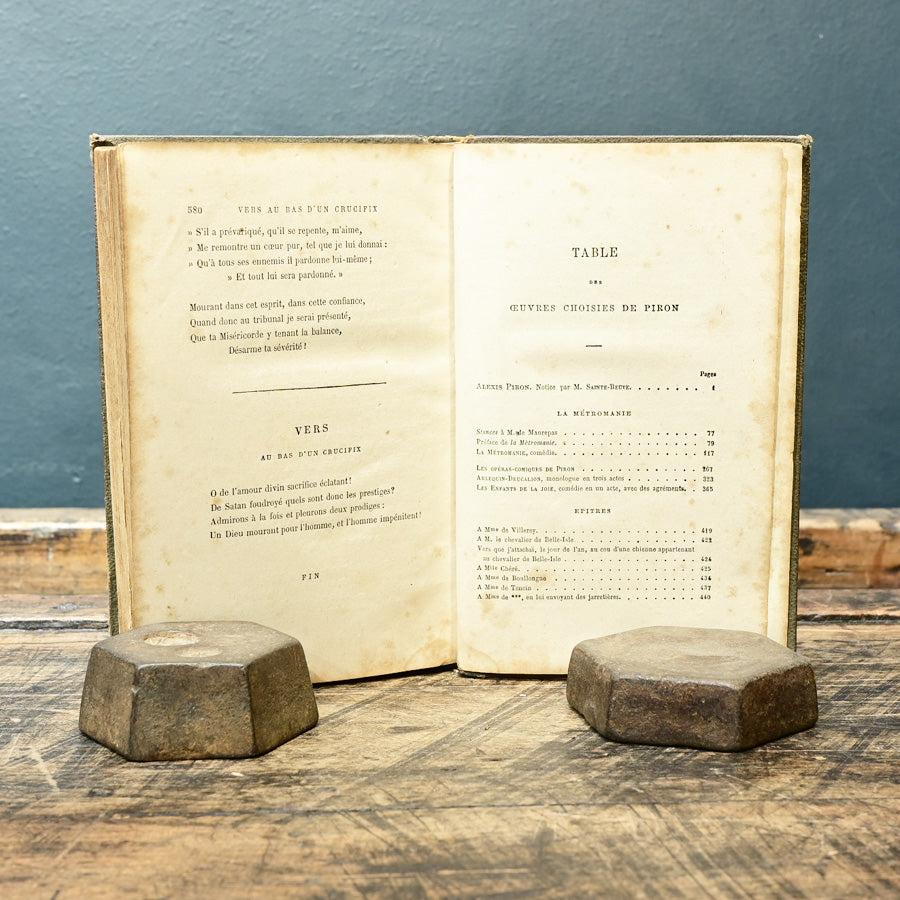 580 VERS AU BAS D'UN CRUCIFIX
» S'il a prévariqué, qu'il se repente, m'aime,
» Me remontre un cœur pur, tel que je lui donnai :
» Qu'à tous ses ennemis il pardonne lui-même ;
» Et tout lui sera pardonné. »
Mourant dans cet esprit, dans cette confiance,
Quand donc au tribunal je serai présenté,
Que ta Miséricorde y tenant la balance,
Désarme ta sévérité !
VERS
AU BAS D'UN CRUCIFIX
O de l'amour divin sacrifice éclatant !
De Satan foudroyé quels sont donc les prestiges ?
Admirons à la fois et pleurons deux prodiges :
Un Dieu mourant pour l'homme, et l'homme impénitent !
FIN
TABLE
DES
ŒUVRES CHOISIES DE PIRON
Pages
ALEXIS PIRON. Notice par M. SAINTE-BEUVE. . . . . . . . 1
LA MÉTROMANIE
Stances à M. de Maurepas . . . . . . . . . . . . . . . 77
Préface de la Métromanie. . . . . . . . . . . . . . . 79
LA MÉTROMANIE, comédie. . . . . . . . . . . . . . . 117
LES OPÉRAS-COMIQUES DE PIRON . . . . . . . . . . . . . 267
ARLEQUIN-DEUCALION, monologue en trois actes . . . . . . . . 323
LES ENFANTS DE LA JOIE, comédie en un acte, avec des agréments. . 365
EPITRES
A Mme de Villeroy. . . . . . . . . . . . . . . . . . 419
A M. le chevalier de Belle-Isle . . . . . . . . . . . . . 422
Vers que j'attachai, le jour de l'an, au cou d'une chienne appartenant
au chevalier de Belle-Isle . . . . . . . . . . . . . . 424
A Mlle Chéré. . . . . . . . . . . . . . . . . . . 425
A Mme de Boullongne . . . . . . . . . . . . . . . . 434
A Mme de Tencin . . . . . . . . . . . . . . . . . 437
A Mme de ***, en lui envoyant des jarretières. . . . . . . . 440